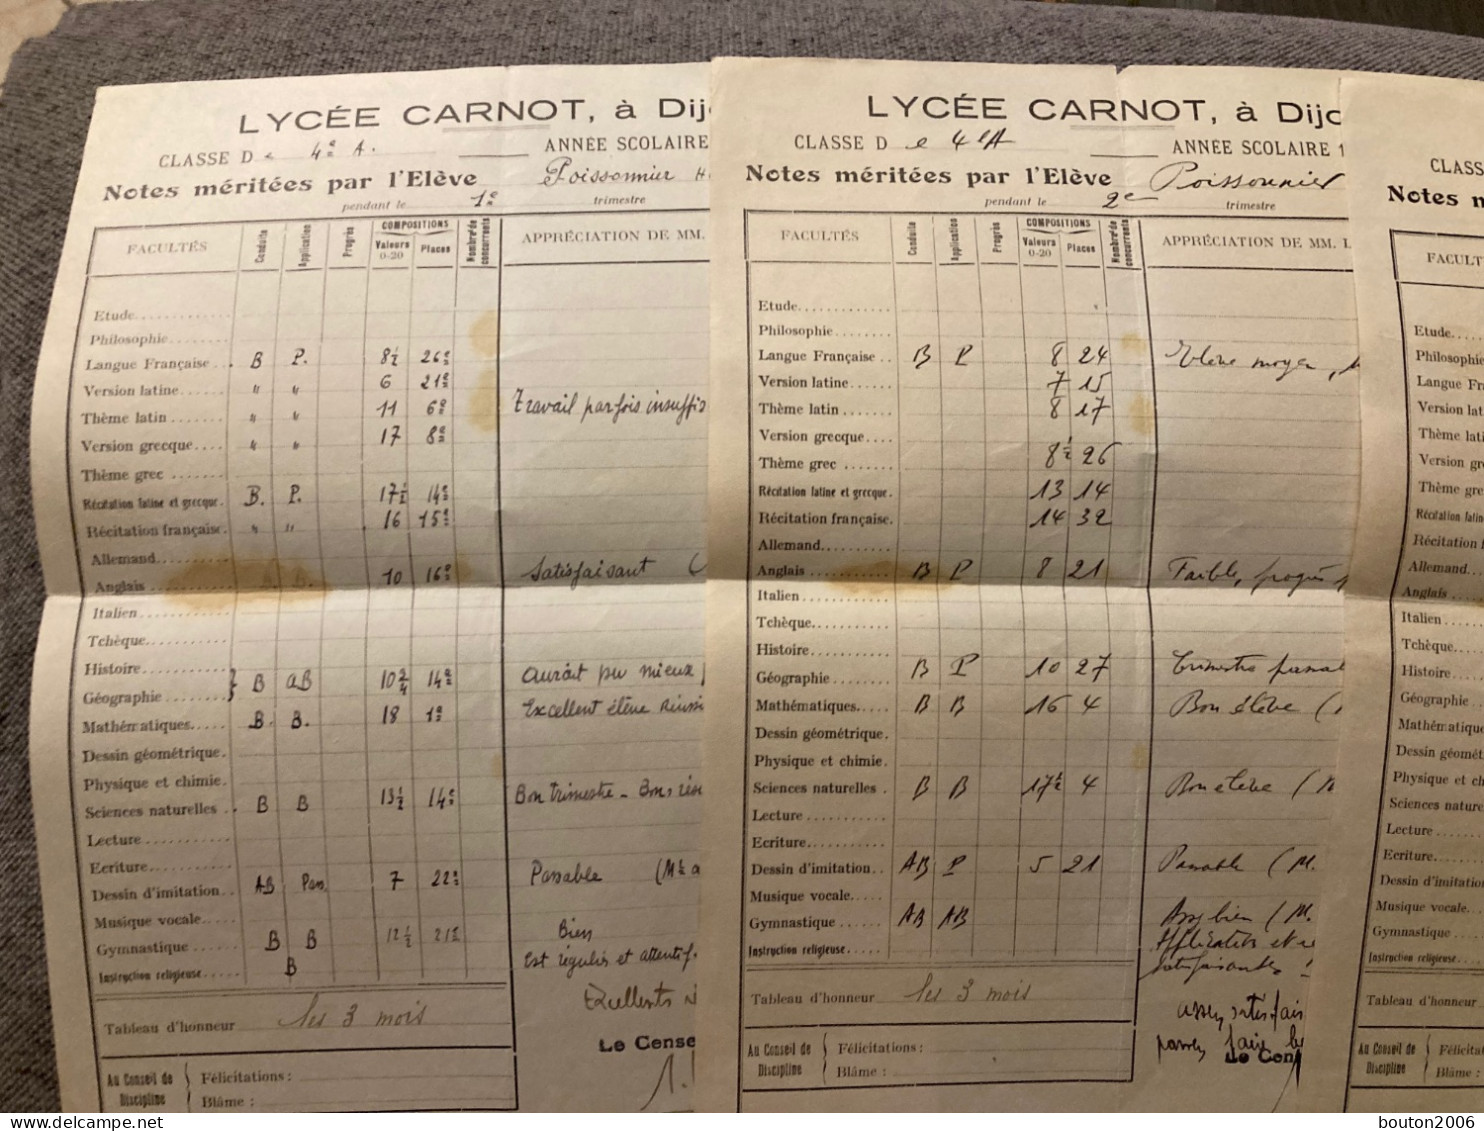 LYCÉE CARNOT, à Dij
CLASSE De 4e A.
ANNÉE SCOLAIRE
Notes méritées par l'Elève Poissonnier H
pendant le 1e trimestre
FACULTÉS Conduite Application Progrès COMPOSITIONS Valeurs 0-20 Places Nombre de concurrents APPRÉCIATION DE MM.
Etude
Philosophie
Langue Française B P. 8½ 26e
Version latine " " 6 21e
Thème latin " " 11 6e Travail parfois insuffis
Version grecque " " 17 8e
Thème grec
Récitation latine et grecque B. P. 17½ 14e
Récitation française " " 16 15e
Allemand
Anglais B. B. 10 16e Satisfaisant
Italien
Tchèque
Histoire
Géographie B AB 10¾ 14e aurait pu mieux
Mathématiques B. B. 18 1e Excellent élève Réussi
Dessin géométrique
Physique et chimie
Sciences naturelles B B 13½ 14e Bon trimestre - Bons rés
Lecture
Ecriture
Dessin d'imitation AB Pas. 7 22e Passable
Musique vocale
Gymnastique B B 12½ 21e Bien
Instruction religieuse B Est régulier et attentif.
Excellents
Tableau d'honneur les 3 mois
Le Cense
Au Conseil de Discipline
Félicitations :
Blâme :
LYCÉE CARNOT, à Dijo
CLASSE De 4e A
ANNÉE SCOLAIRE 1
Notes méritées par l'Elève Poissonnier
pendant le 2e trimestre
FACULTÉS Conduite Application Progrès COMPOSITIONS Valeurs 0-20 Places Nombre de concurrents APPRÉCIATION DE MM. L
Etude
Philosophie
Langue Française B P 8 24 Elève moyen,
Version latine 7 15
Thème latin 8 17
Version grecque
Thème grec 8½ 26
Récitation latine et grecque. 13 14
Récitation française. 14 32
Allemand
Anglais B P 8 21 Faible, progrès
Italien
Tchèque
Histoire
Géographie B P 10 27 Trimestre passab
Mathématiques B B 16 4 Bon élève (
Dessin géométrique.
Physique et chimie.
Sciences naturelles B B 17½ 4 Bon élève (
Lecture
Ecriture
Dessin d'imitation AB P 5 21 Passable (M.
Musique vocale
Gymnastique AB AB Assez bien (M.
Instruction religieuse Application et
satisfaisantes
Tableau d'honneur les 3 mois
assez satisfai
Le Cens
Au Conseil de Discipline
Félicitations :
Blâme :
CLASS
Notes m
FACULT
Etude
Philosophie
Langue Fra
Version lat
Thème lati
Version gr
Thème gre
Récitation latin
Récitation f
Allemand
Anglais
Italien
Tchèque
Histoire
Géographie
Mathématique
Dessin géomét
Physique et ch
Sciences nature
Lecture
Ecriture
Dessin d'imitation
Musique vocale
Gymnastique
Instruction religieuse
Tableau d'honneur
Au Conseil de Discipline
Félicitat
Blâme :
delcampe.net
bouton2006